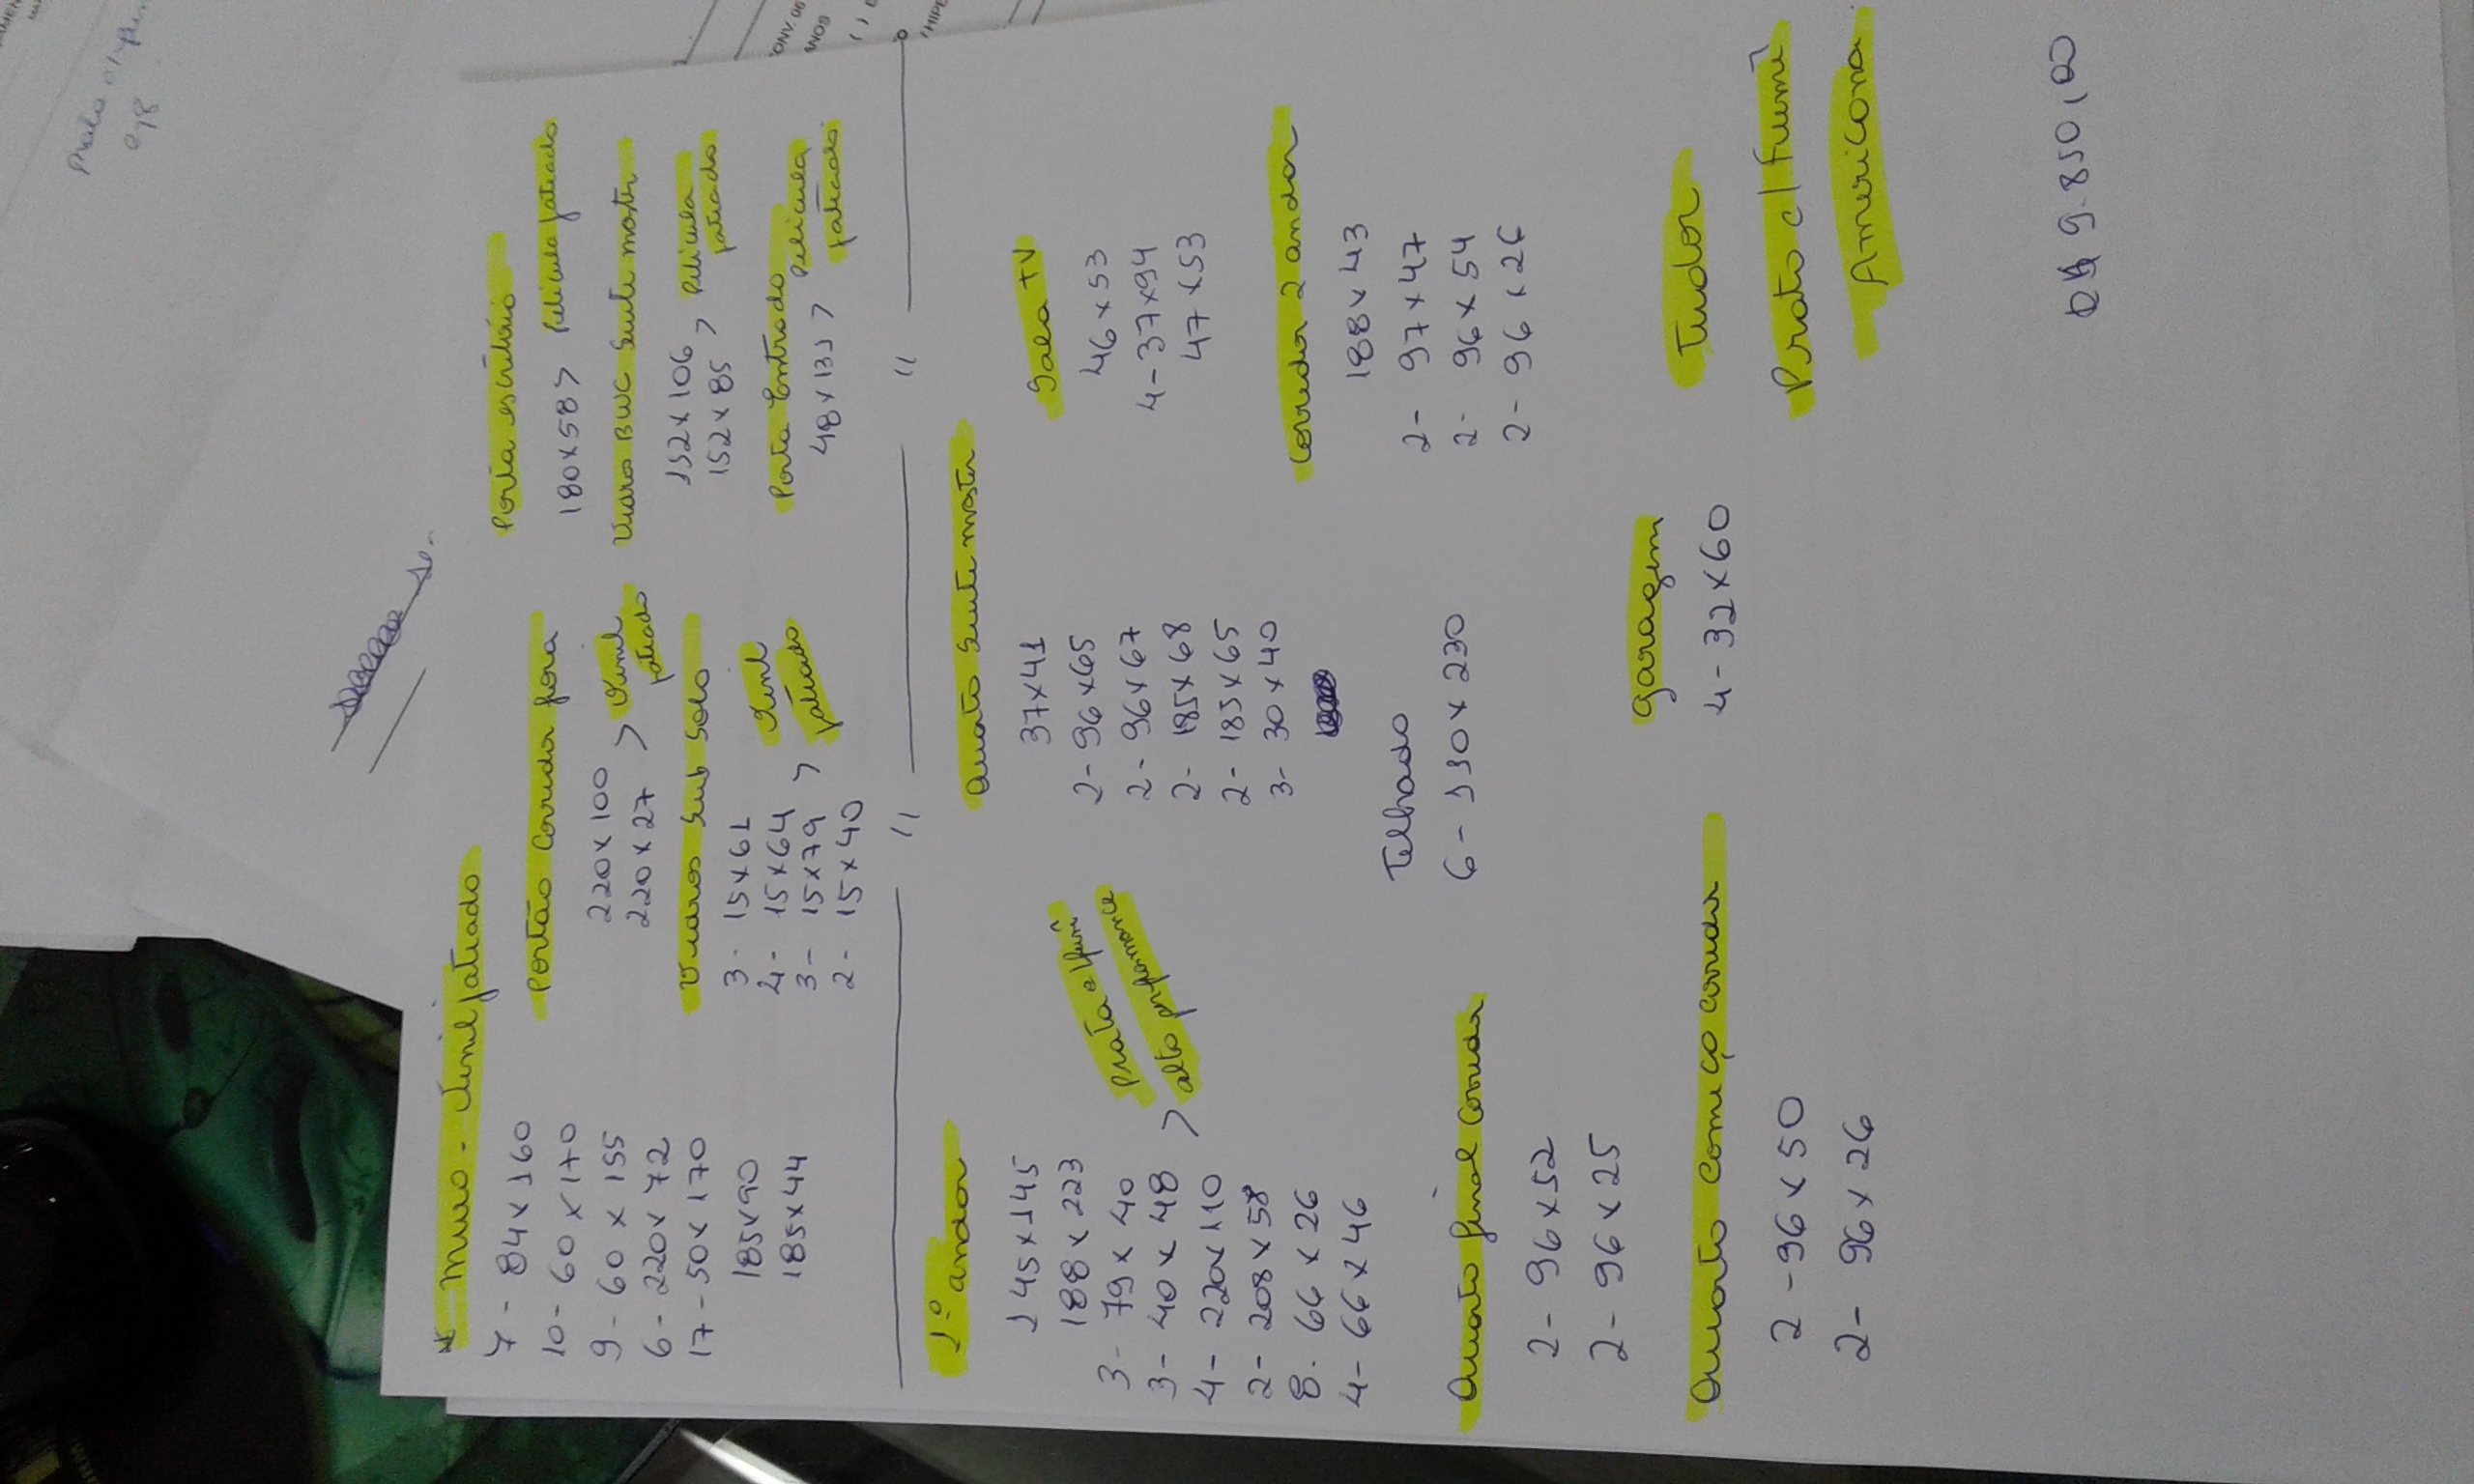 Muro - Vinil jateado
7 - 84 x 160
10 - 60 x 170
9 - 60 x 155
6 - 220 x 72
17 - 50 x 170
185 x 90
185 x 44
Portão Corredor fora
220 x 100
220 x 27 > Vinil jateado
Vidros Sub Solo
3 - 15 x 61
4 - 15 x 64
3 - 15 x 79 > Vinil jateado
2 - 15 x 40
Porta escritório
180 x 58 > Pelicula jateado
Vidros BWC Suite master
152 x 106 > Pelicula
152 x 85 > jateado
Porta Entrada
48 x 133 > Pelicula jateado
1º andar
145 x 145
188 x 223
3 - 79 x 40
3 - 40 x 48
4 - 220 x 110 > Prata c/ fumê alto performance
2 - 208 x 58
8 - 66 x 26
4 - 66 x 46
Quarto Suite master
37 x 41
2 - 96 x 65
2 - 96 x 67
2 - 185 x 68
2 - 185 x 65
3 - 30 x 40
Sala TV
46 x 53
4 - 37 x 94
47 x 53
Telhado
6 - 130 x 230
Corredor 2 andar
188 x 43
2 - 97 x 47
2 - 96 x 54
2 - 96 x 26
Quarto final Corredor
2 - 96 x 52
2 - 96 x 25
Quarto Começo corredor
2 - 96 x 50
2 - 96 x 26
garagem
4 - 32 x 60
Tudor
Prata c/ Fumê
Americana
R$ 9.850,00
ONV. 06
ANOS